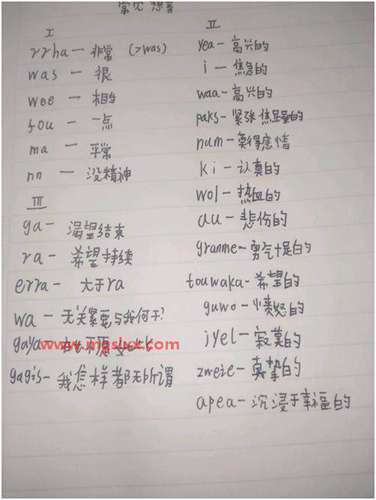 常见想音
I
rrha — 非常 (>was)
was — 很
wee — 相当
fou — 一点
ma — 平常
nn — 没精神
III
ga — 渴望结束
ra — 希望持续
erra — 大于ra
wa — 无关紧要与我何干?
gaya —
gagis — 我怎样都无所谓
II
yea — 高兴的
i — 焦急的
waa — 高兴的
paks — 紧张焦虑的
num — 莫得感情
ki — 认真的
wol — 热血的
au — 悲伤的
granme — 勇气十足的
touwaka — 希望的
guwo — 愤怒的
iyel — 寂寞的
zweie — 真挚的
apea — 沉浸于幸福的